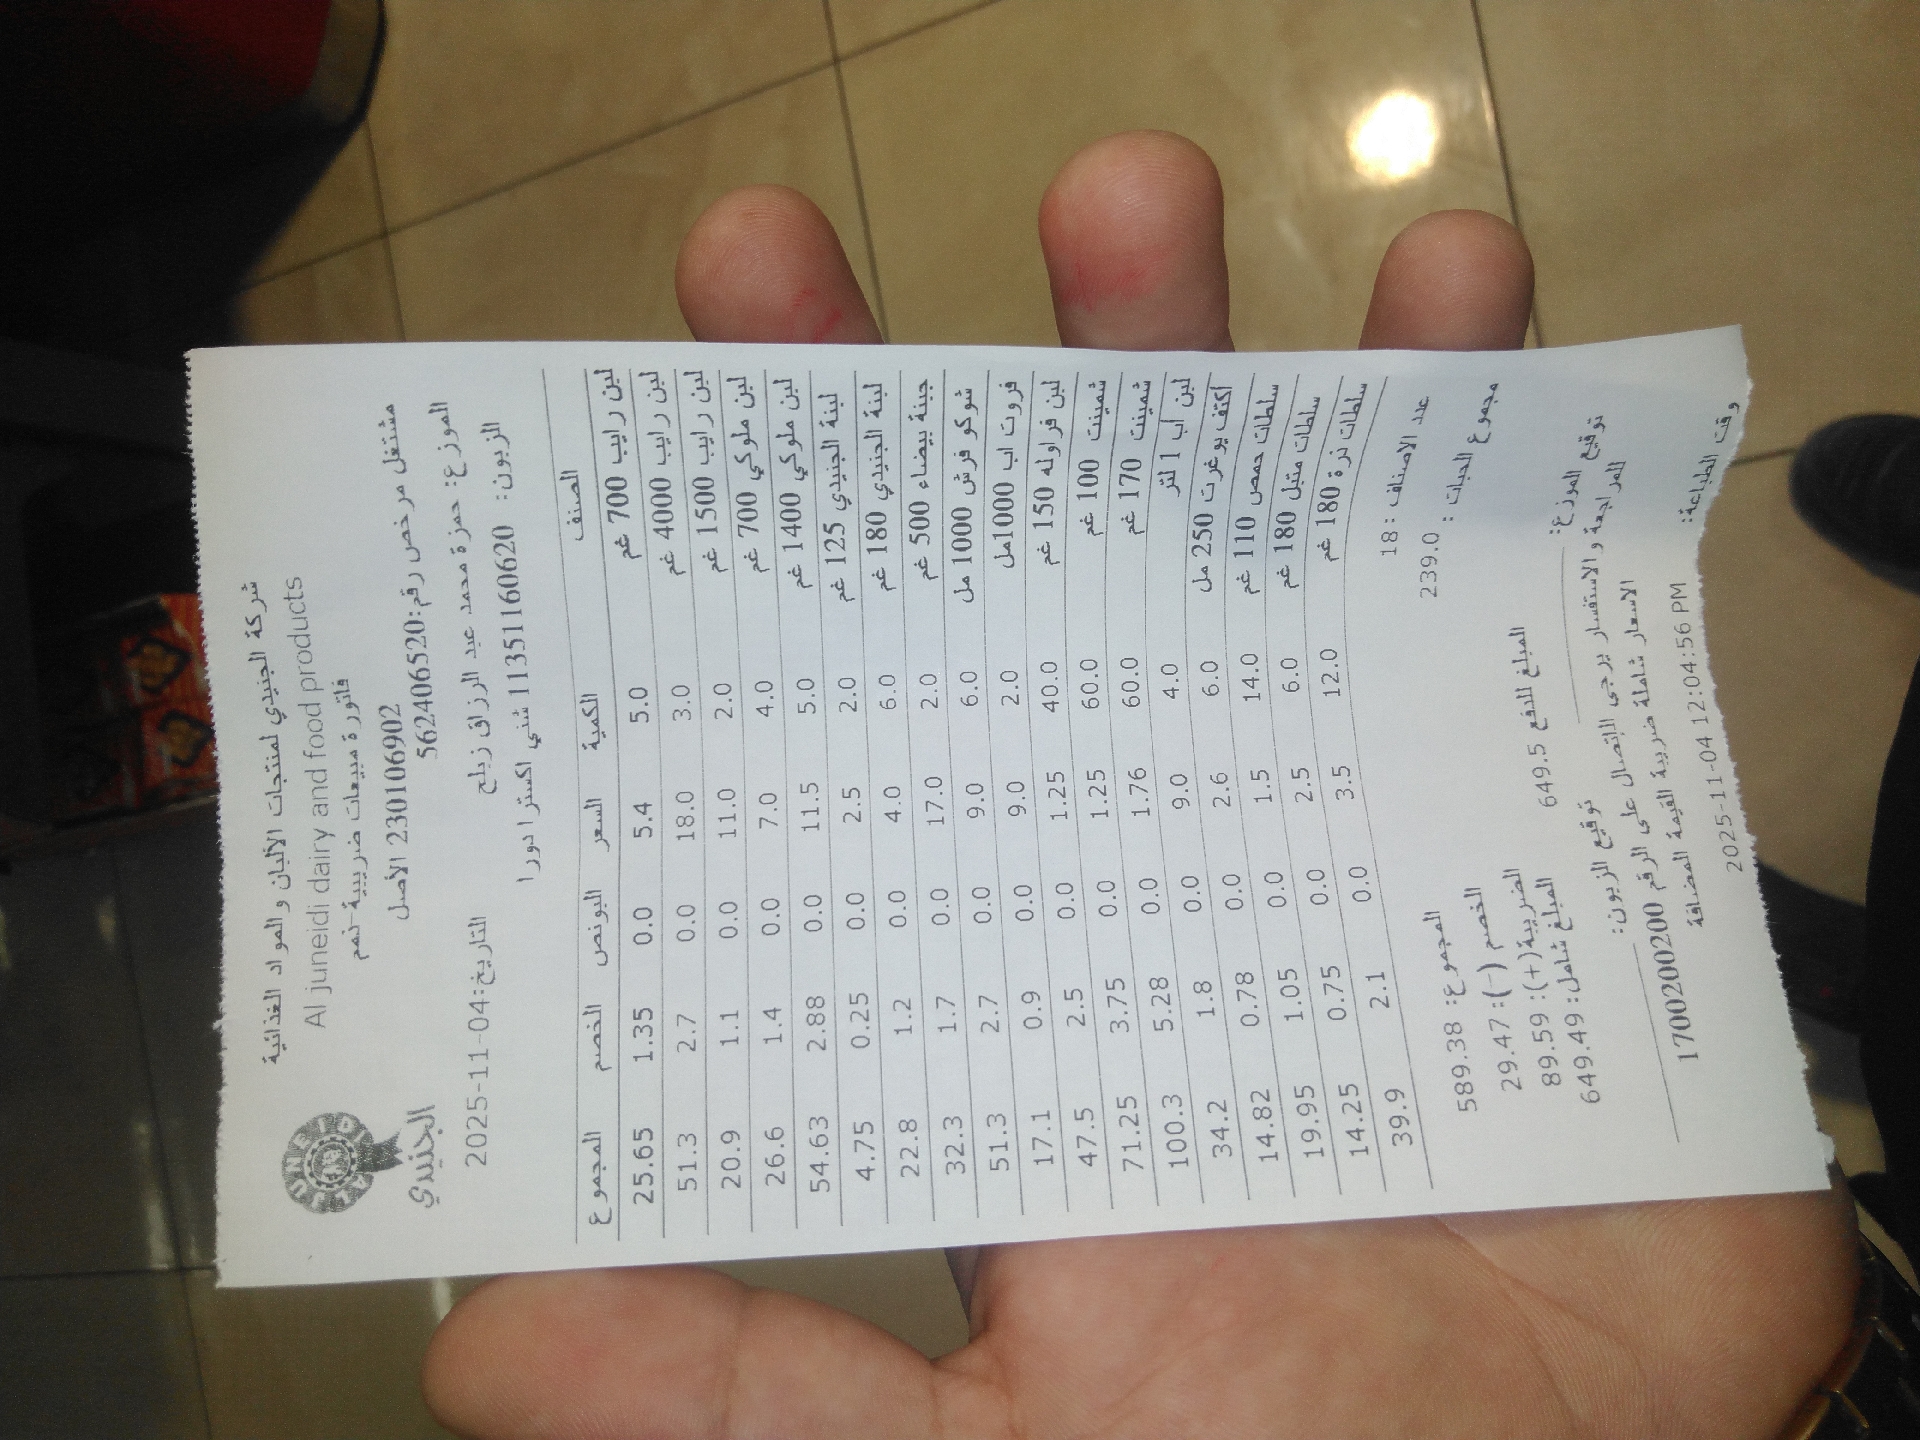 شركة الجنيدي لمنتجات الألبان والمواد الغذائية
Al juneidi dairy and food products
فاتورة مبيعات ضريبية-ذمم
230106902 الأصل
مشتغل مرخص رقم:562406520
AL JUNEIDI
الجنيدي
الموزع: حمزة محمد عبد الرزاق زبلح
التاريخ:2025-11-04
الزبون: 11351160620 شني اكسترا دورا
الصنف الكمية السعر البونص الخصم المجموع
لبن رايب 700 غم 5.0 5.4 0.0 1.35 25.65
لبن رايب 4000 غم 3.0 18.0 0.0 2.7 51.3
لبن رايب 1500 غم 2.0 11.0 0.0 1.1 20.9
لبن ملوكي 700 غم 4.0 7.0 0.0 1.4 26.6
لبن ملوكي 1400 غم 5.0 11.5 0.0 2.88 54.63
لبنة الجنيدي 125 غم 2.0 2.5 0.0 0.25 4.75
لبنة الجنيدي 180 غم 6.0 4.0 0.0 1.2 22.8
جبنة بيضاء 500 غم 2.0 17.0 0.0 1.7 32.3
شوكو فرش 1000 مل 6.0 9.0 0.0 2.7 51.3
فروت اب 1000مل 2.0 9.0 0.0 0.9 17.1
لبن فراوله 150 غم 40.0 1.25 0.0 2.5 47.5
شمينت 100 غم 60.0 1.25 0.0 3.75 71.25
شمينت 170 غم 60.0 1.76 0.0 5.28 100.3
لبن اب 1 لتر 4.0 9.0 0.0 1.8 34.2
اكتف يوغرت 250 مل 6.0 2.6 0.0 0.78 14.82
سلطات حمص 110 غم 14.0 1.5 0.0 1.05 19.95
سلطات متبل 180 غم 6.0 2.5 0.0 0.75 14.25
سلطات ذرة 180 غم 12.0 3.5 0.0 2.1 39.9
عدد الاصناف : 18
مجموع الحبات : 239.0
المجموع: 589.38
الخصم (-): 29.47
الضريبة(+): 89.59
المبلغ للدفع 649.5
المبلغ شامل: 649.49
توقيع الموزع:
توقيع الزبون:
للمراجعة والاستفسار يرجى الاتصال على الرقم 1700200200
الاسعار شاملة ضريبة القيمة المضافة
وقت الطباعة: 2025-11-04 12:04:56 PM